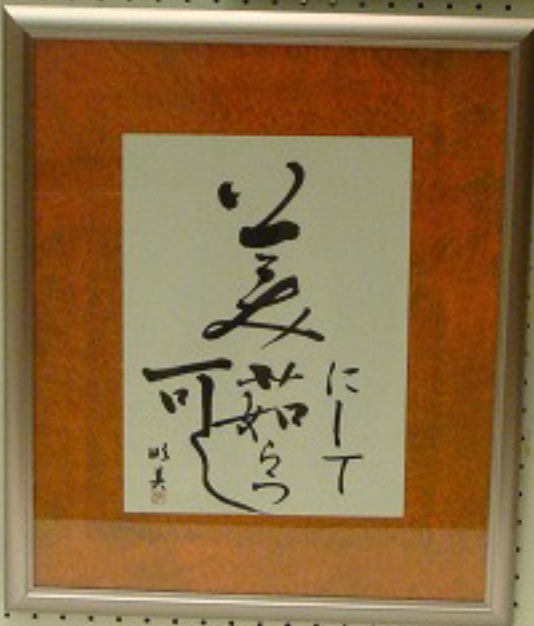 美
にして
茹らう
可し